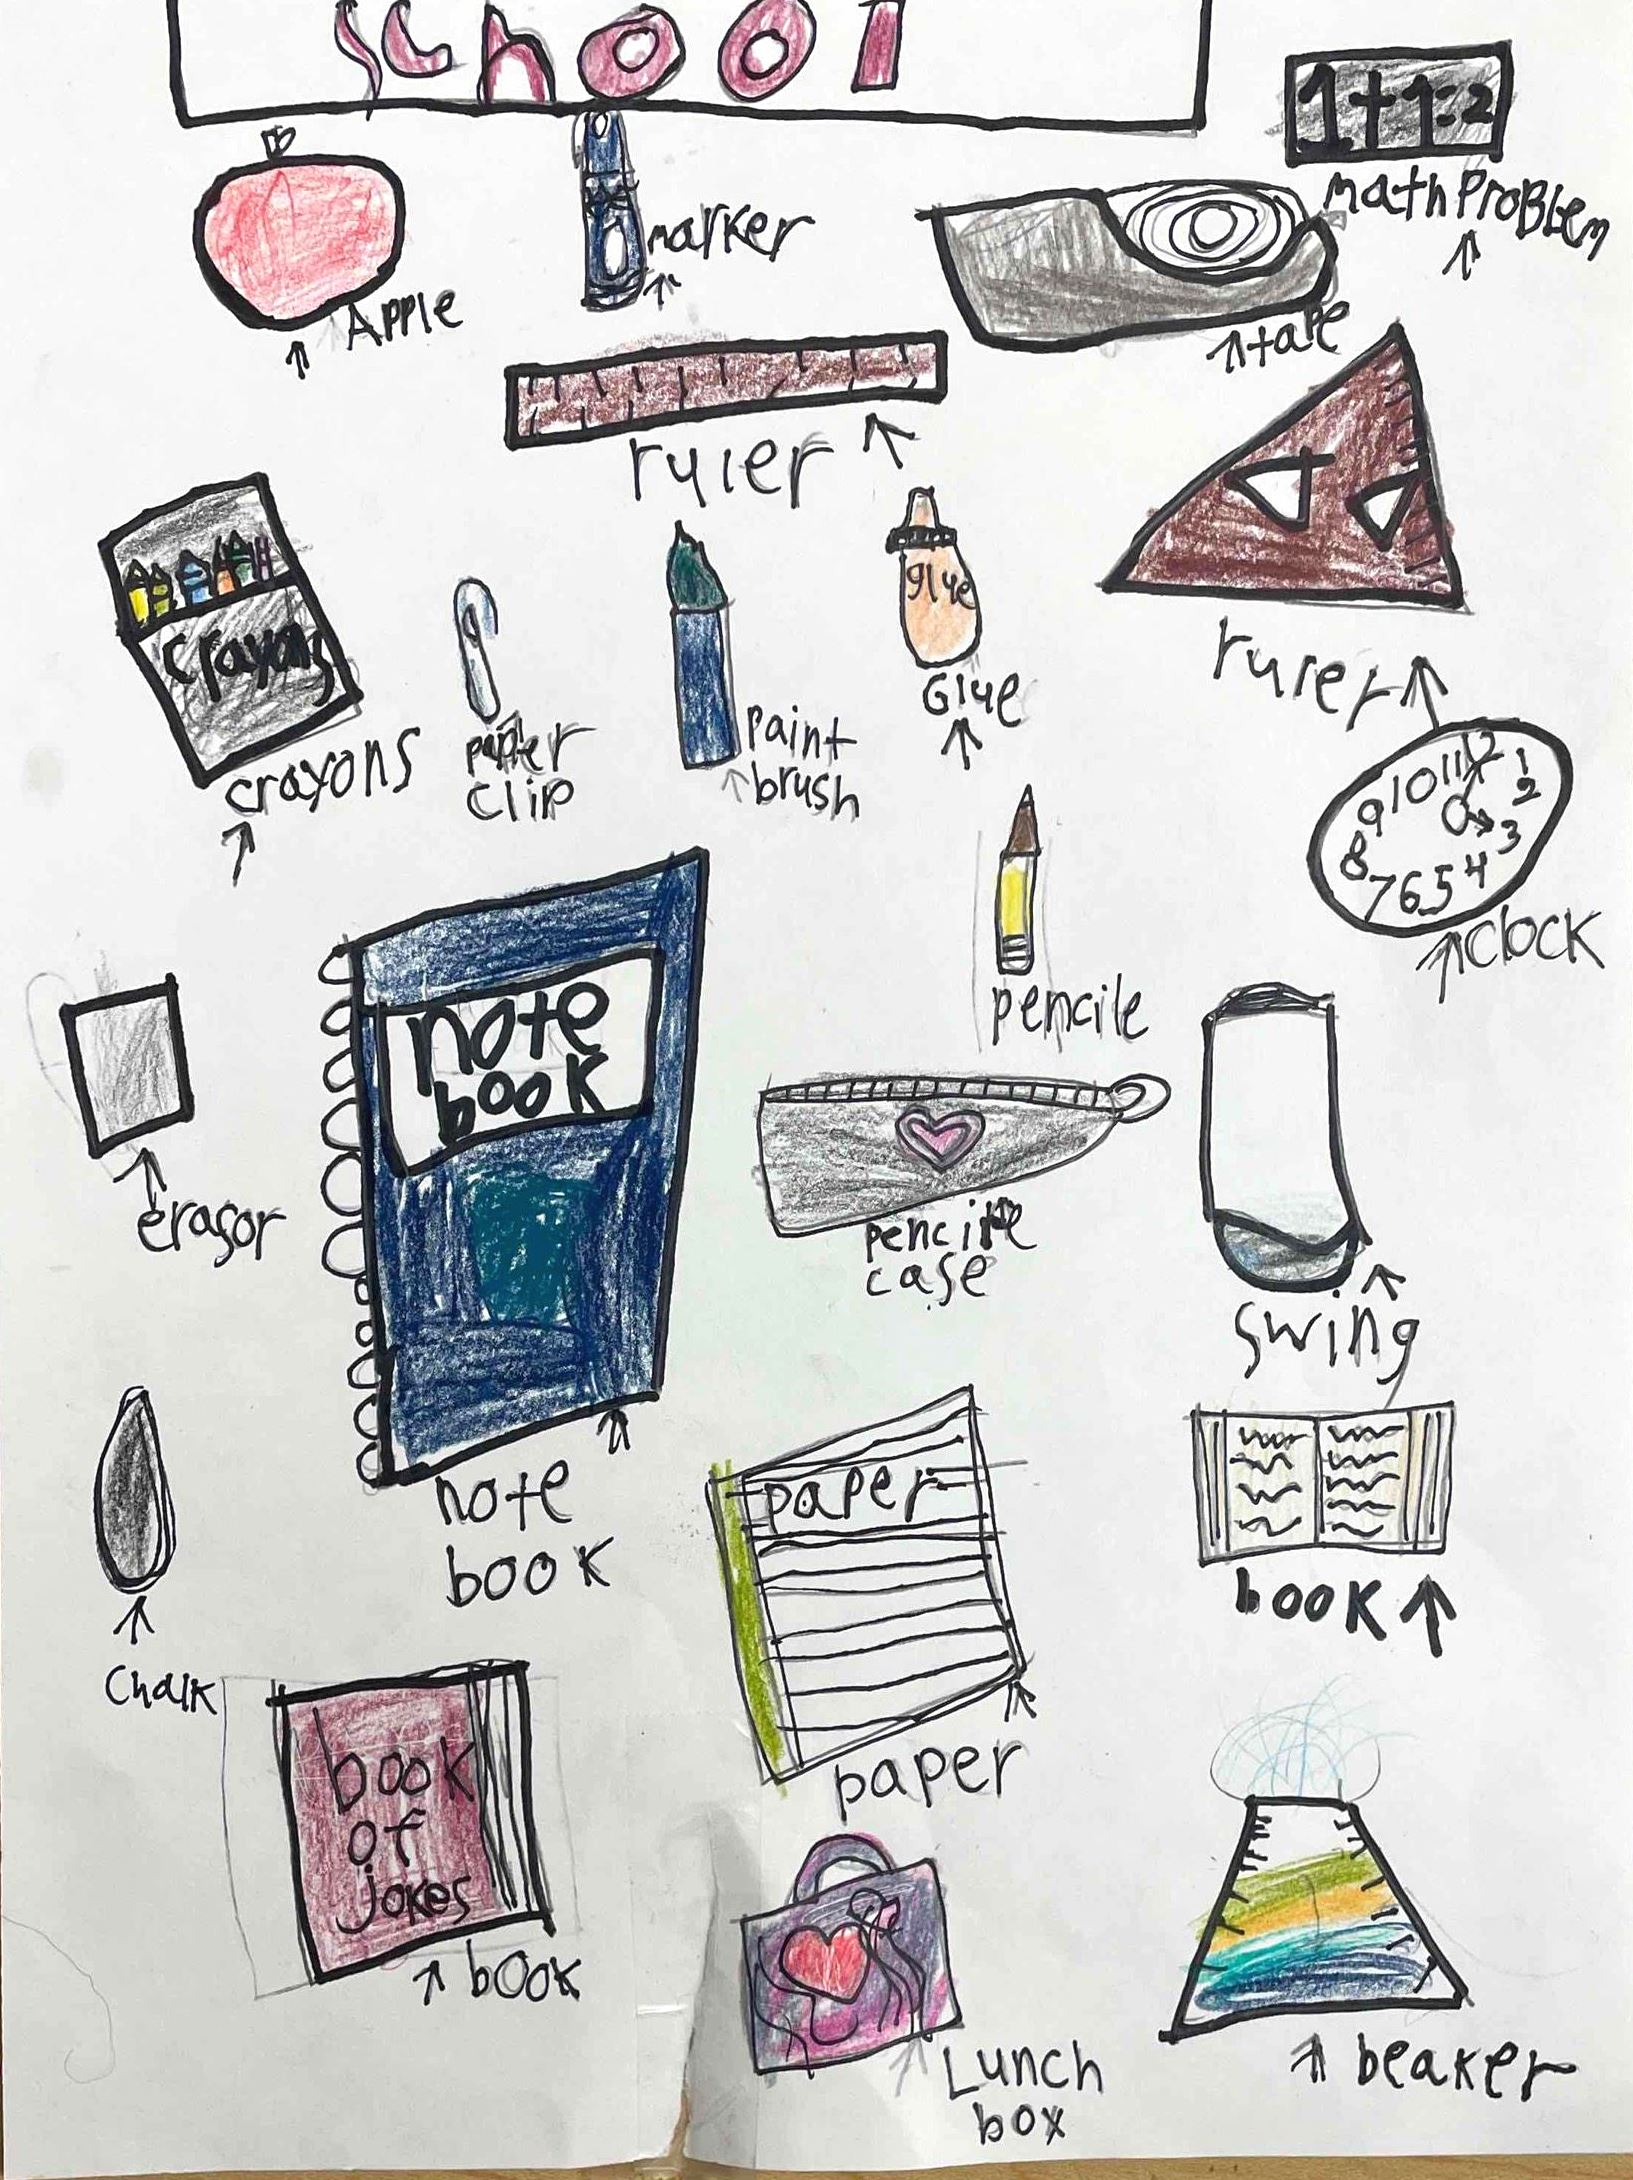 school
1+1=2
math problem
Apple
marker
tape
ruler
ruler
crayons
crayons
paper
clip
paint
brush
glue
Glue
10 11 12 1
9 2
8 3
7 6 5 4
clock
pencile
note
book
note
book
erasor
pencile
case
swing
chalk
paper
paper
book
book
of
jokes
book
Lunch
box
beaker